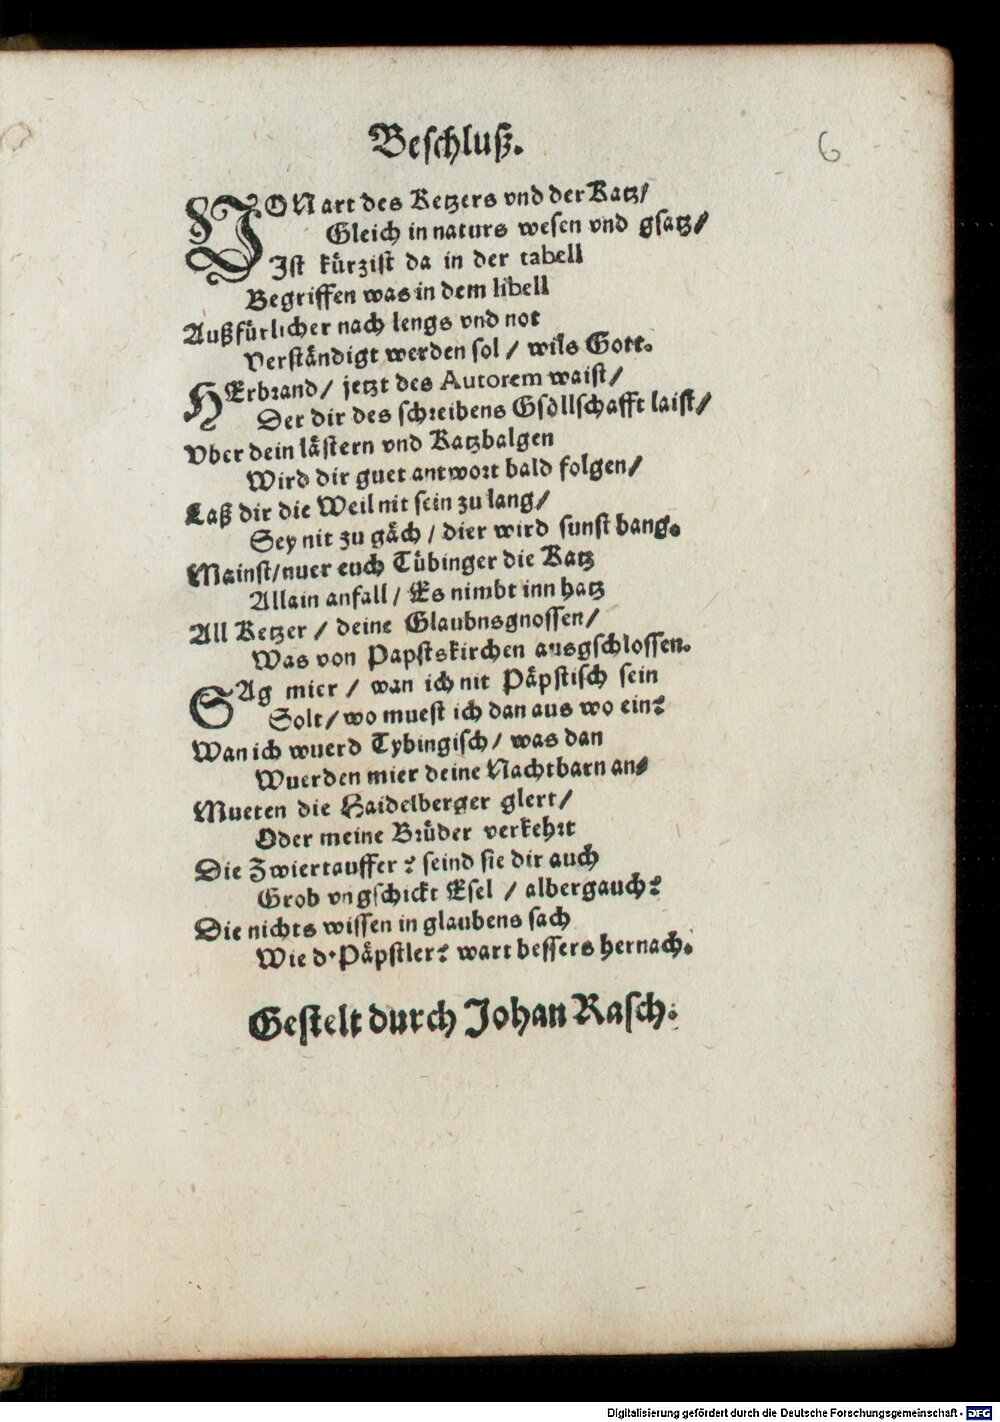 Beschluß.
6
VON art des Ketzers vnd der Katz/
Gleich in naturs wesen vnd gsatz/
Ist kürzist da in der tabell
Begriffen was in dem libell
Außfürlicher nach lengs vnd not
Verständigt werden sol / wils Gott.
HErbrand / jetzt des Autorem waist /
Der dir des schreibens Gsöllschafft laist /
Vber dein lästern vnd Katzbalgen
Wird dir guet antwort bald folgen /
Laß dir die Weil nit sein zu lang /
Sey nit zu gäch / dier wird sunst bang.
Mainst / nuer euch Tübinger die Katz
Allain anfall / Es nimbt inn hatz
All Ketzer / deine Glaubnsgnossen /
Was von Papstskirchen ausgschlossen.
SAg mier / wan ich nit Päpstisch sein
Solt / wo muest ich dan aus wo ein?
Wan ich wuerd Tybingisch / was dan
Wuerden mier deine Nachtbarn an⸗
Mueten die Haidelberger glert /
Oder meine Brüder verkehrt
Die Zwiertauffer? seind sie dir auch
Grob vngschickt Esel / albergauch?
Die nichts wissen in glaubens sach
Wie d' Päpstler? wart bessers hernach.
Gestelt durch Johan Rasch.
Digitalisierung gefördert durch die Deutsche Forschungsgemeinschaft - DFG